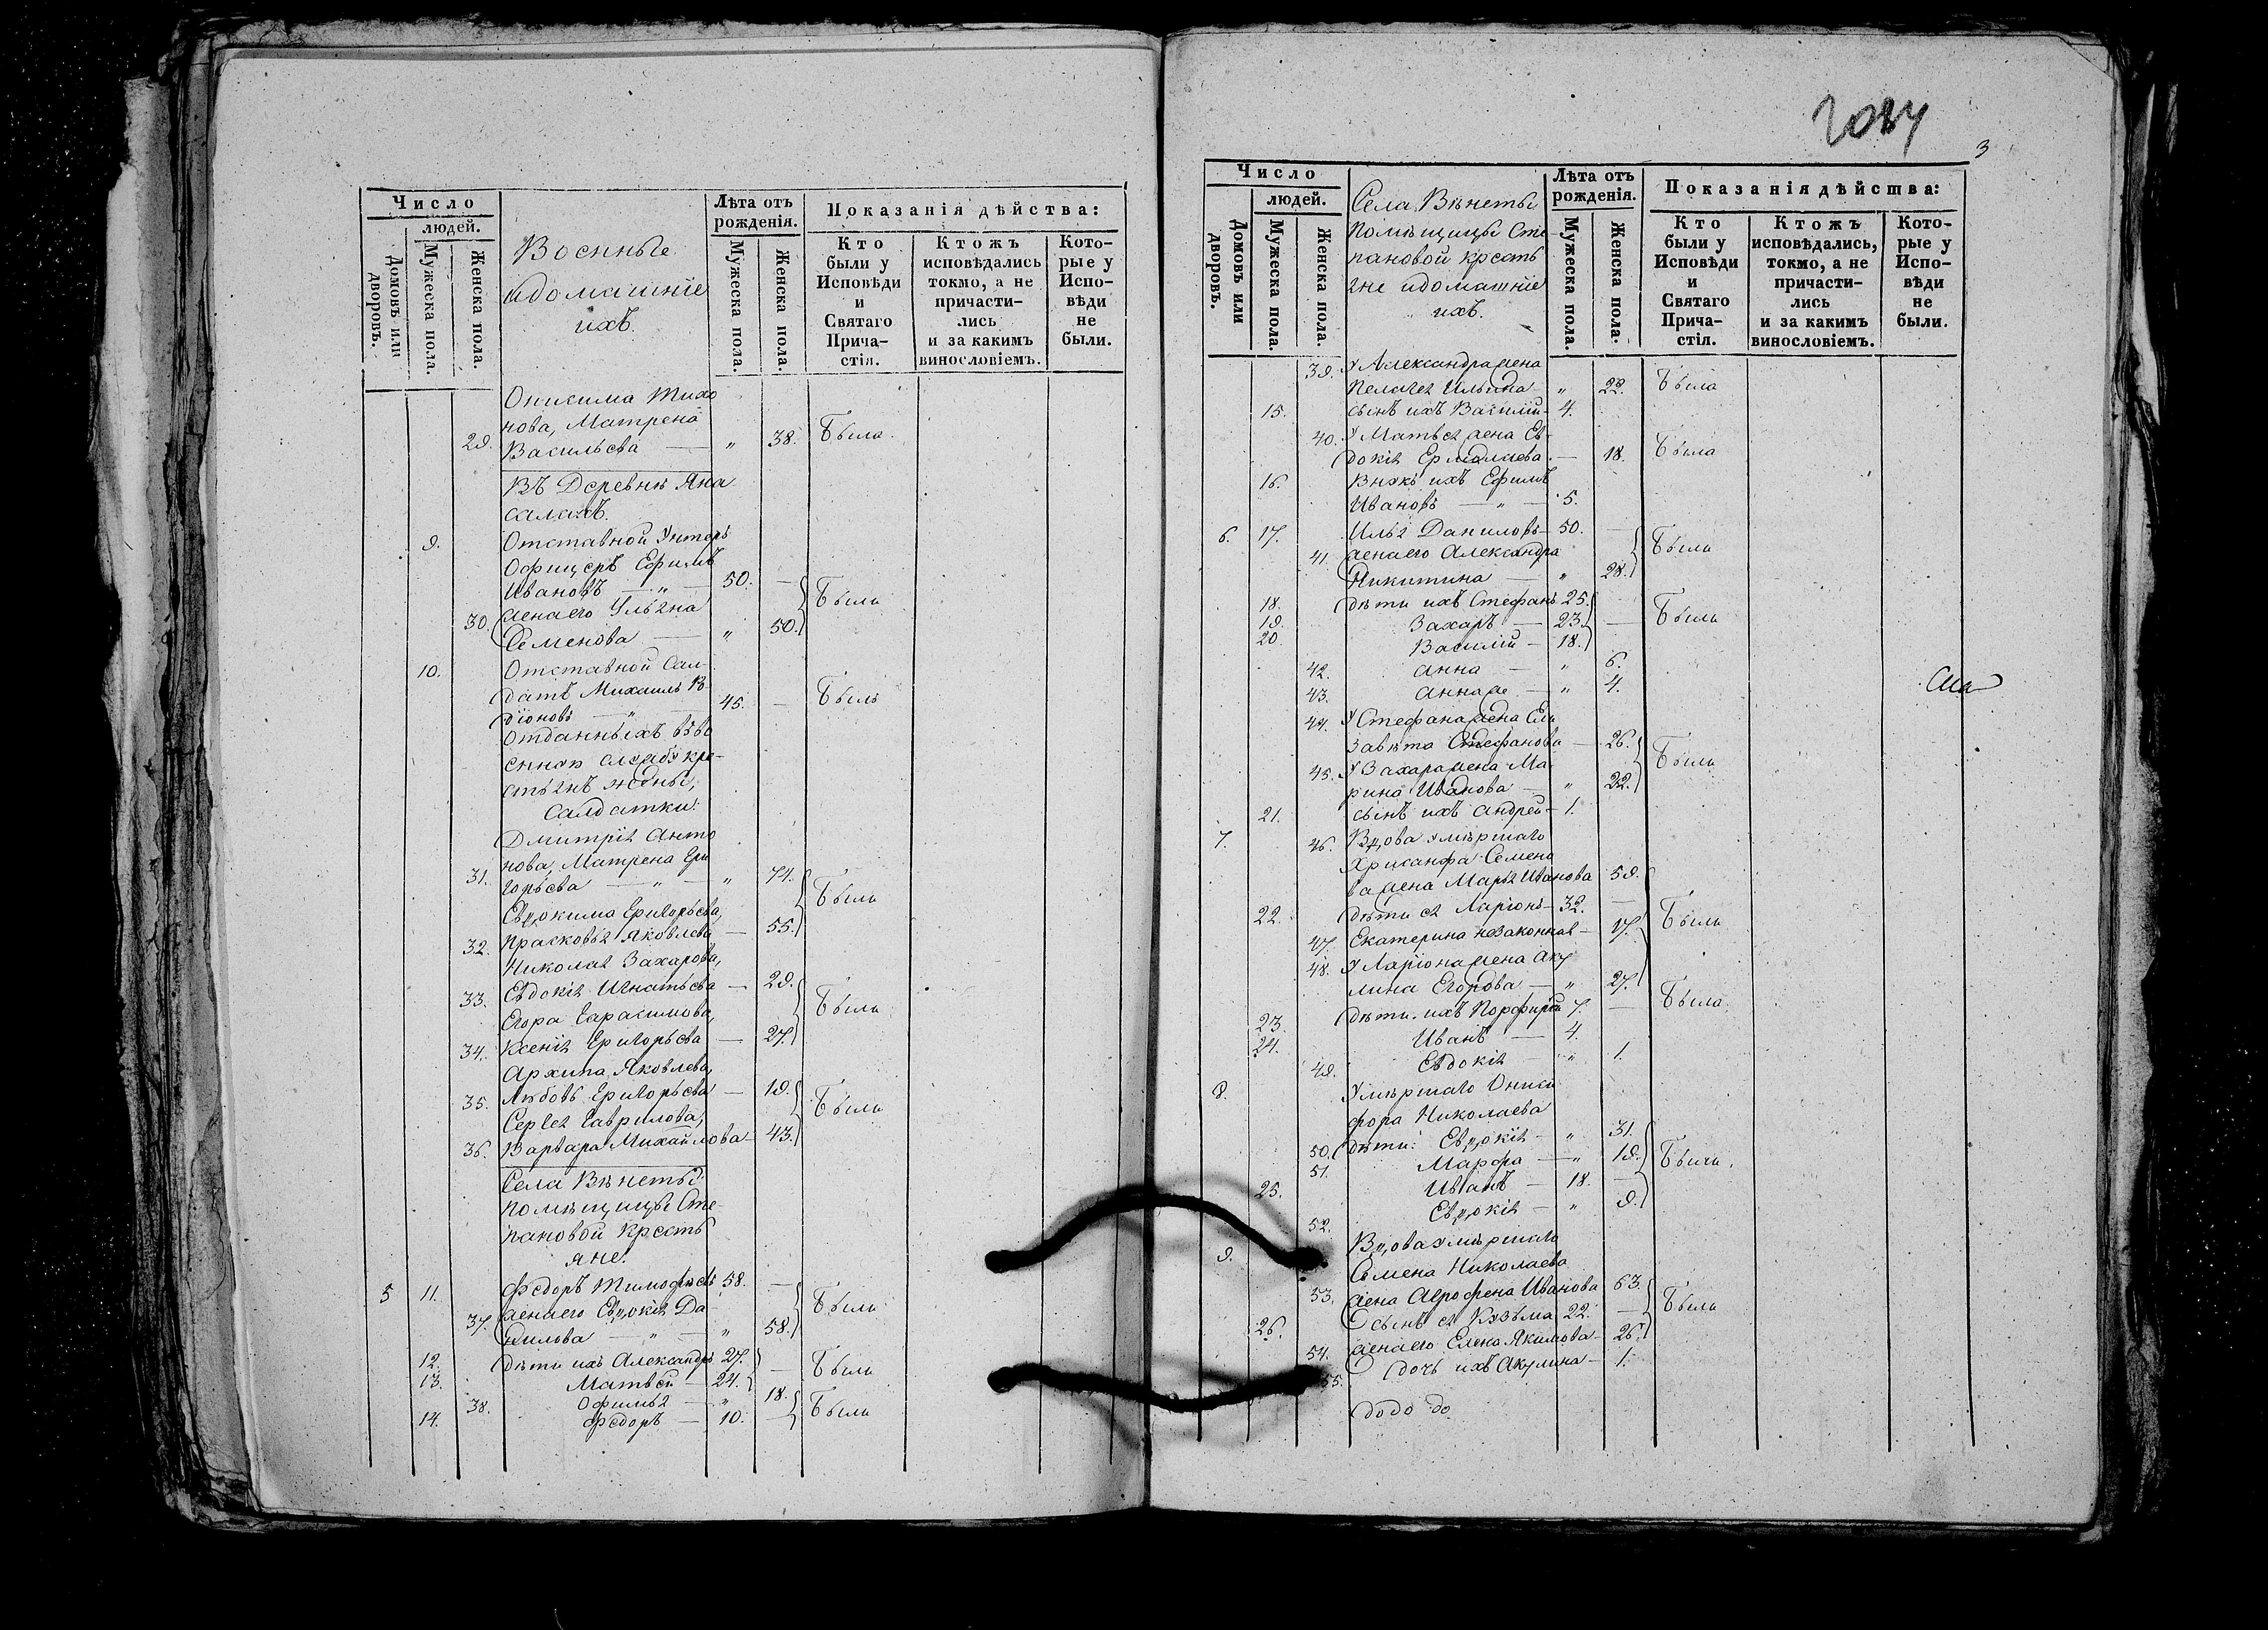 Число
людей.
Домовъ или дворовъ.
Мужеска пола.
Женска пола.
Военные
и домашніе
ихъ.
Лѣта отъ
рожденія.
Мужеска пола.
Женска пола.
Показанія дѣйства:
Кто
были у
Исповѣди
и
Святаго
Прича-
стія.
Ктожъ
исповѣдались
токмо, а не
причасти-
лись
и за какимъ
винословіемъ.
Кото-
рые у
Испо-
вѣди
не
были.
Онисима Тихо
нова, Матрена
29. Васильева — " 38. Была
Въ Деревнѣ Яна
салахъ.
9. Отставной Унторъ
Офицеръ Ефимъ
Ивановъ — " — 50. — Были
30. жена его Ульяна
Семенова — " 50.
10. Отставной Сал-
датъ Михаилъ
діоновъ — " 45. — Былъ
Отданныхъ въ во
енную службу кре-
стьянъ жены,
салдатки:
Дмитрія Анто
нова, Матрена Гри
31. горьева — " — " 74. Были
Евдокима Григорьева,
32. Прасковья Яковлева — 55.
Николая Захарова,
33. Евдокія Игнатьева — 29. Были
Егора Гарасимова,
34. Ксенія Григорьева — 27.
Архипа Яковлева,
35. Любовь Григорьева — 19. Были
Сергея Гаврилова,
36. Варвара Михайлова — 43.
Села Вѣнеты
помѣщицы Сте-
пановой Кресть
яне.
5 11. Федоръ Тимофѣевъ 58. — Были
37. жена его Евдокія Да
нилова — " — " 58.
12. Дѣти ихъ Александръ 27. — Были
13. Матвей — 24.
38. Офимья — " 18. Были
14. Федоръ — 10. —
2034
3
Число
людей.
Домовъ или дворовъ.
Мужеска пола.
Женска пола.
Села Вѣнеты
Помѣщицы Сте
пановой кресть
яне и домашніе
ихъ.
Лѣта отъ
рожденія.
Мужеска пола.
Женска пола.
Показанія дѣйства:
Кто
были у
Исповѣди
и
Святаго
Прича-
стія.
Ктожъ
исповѣдались,
токмо, а не
причасти-
лись
и за какимъ
винословіемъ.
Кото-
рые у
Испо-
вѣди
не
были.
39. У Александра жена
Пелагея Ильина — " 22. Была
15. сынъ ихъ Василій — 4.
40. У Матвея жена Ев-
докія Ермолаева — 18. Была
16. Внукъ ихъ Ефимъ
Ивановъ — " — 5.
6. 17. Илья Даниловъ — 50. — Были
41. жена его Александра
Никитина — " 28.
18. Дѣти ихъ Стефанъ 25. — Были
19. Захаръ — 23. —
20 Василій — 18.
42. Анна — " 6.
43. Анна же — " 4.
44. У Стефана жена Ели
завета Стефанова — 26. Были
45. У Захара жена Ма-
рина Иванова — " 22.
21. сынъ ихъ Андрей — 1.
7. 46. Вдова умершаго
Хрисанфа Семено
ва жена Марья Иванова 59.
22. Дѣти ея Ларіонъ — 32. — Были
47. Екатерина незаконная — 17.
48. У Ларіона жена Аку
лина Егорова — " 27.
23. Дѣти ихъ Порфирій 7. — Была
24. Иванъ — 4.
49. Евдокія — " 1.
8. Умѣршаго Ониси
фора Николаева
50. Дѣти: Евдокія — " 31.
51. Марфа — " 19. Были.
25. Иванъ — 18. —
52. Евдокія — " 9.
9. Вдова умѣршаго
Семена Николаева
53. жена Агрофена Иванова 63. Были
26. сынъ ея Кузьма 22. —
54. жена его Елена Якимова — 26.
55. дочь ихъ Акулина — 1.